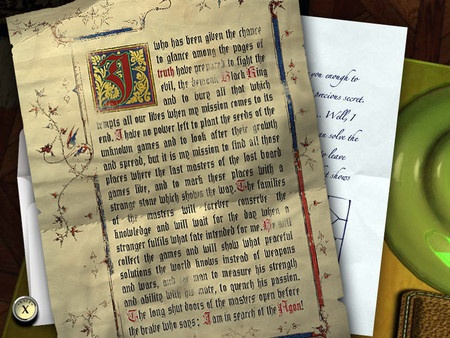 I who has been given the chance
to glance among the pages of
truth have prepared to fight the
evil, the demonic Black King
and to bury all that which
tempts all our likes when my mission comes to its
end. I have no power left to plant the seeds of the
unknown games and to look after their growth
and spread, but it is my mission to find all those
places where the last masters of the lost board
games live, and to mark these places with a
strange stone which shows the way. The families
of the masters will forever conserve the
knowledge and will wait for the day when a
stranger fulfils what fate intended for me. He will
collect the games and will show what peaceful
solutions the world knows instead of weapons
and wars, and let man to measure his strength
and ability with his mate, to quench his passion.
The long shut doors of the masters open before
the brave who says: I am in search of the Agon!
you enough to
precious secret.
... Well, I
can solve the
to leave
shows
X